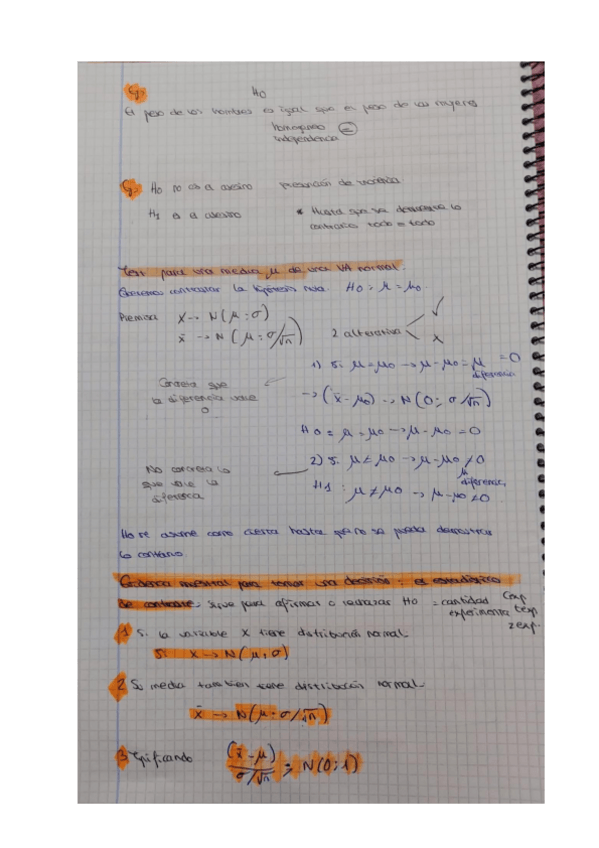 Ej: H0
El peso de los hombres es igual que el peso de las mujeres
Homogeneidad =
independencia
Ej: H0 no es el asesino presunción de inocencia
H1 es el asesino * Hasta que se demuestre lo
contrario nada es nada
Test para una media μ de una VA normal.
Queremos contrastar la hipótesis nula. H0 = μ = μ0.
Premisa X → N(μ; σ)
x̄ → N(μ; σ/√n) 2 alternativas ✓ x
1) Si μ = μ0 → μ - μ0 = μ diferencia = 0
Concreta que
la diferencia vale
0
→ (x̄ - μ0) → N(0; σ/√n)
H0 = μ = μ0 → μ - μ0 = 0
2) Si μ ≠ μ0 → μ - μ0 ≠ 0
μ diferencia,
No concreta lo
que vale la
diferencia
H1: μ ≠ μ0 → μ - μ0 ≠ 0.
H0 se asume como cierta hasta que no se pueda demostrar
lo contrario.
Evidencia muestral para tomar una decisión: el estadístico
de contraste: sirve para afirmar o rechazar H0 = cantidad
experimental texp
zexp.
1 Si la variable X tiene distribución normal
Si X → N(μ; σ)
2 Su media también tiene distribución normal
x̄ → N(μ; σ/√n)
3 Tipificando (x̄ - μ) / σ/√n ; N(0; 1)